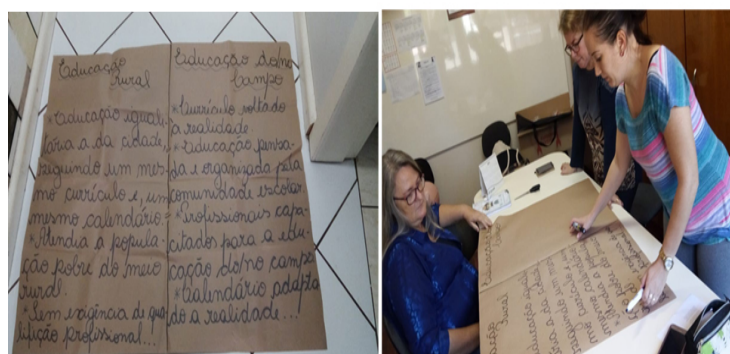 Educação
Rural
* Educação iguali-
tária a da cidade,
seguindo um mes-
mo currículo e, um
mesmo calendário.
* Atendia a popula-
ção pobre do meio
rural.
* Sem exigência de qua-
lifição profissional...
Educação do/no
Campo
* Currículo voltado
a realidade
* Educação pensa-
da e organizada pela
comunidade escolar
* Profissionais capa-
citados para a edu-
cação do/no campo
* Calendário adapta
do a realidade...
Educação
Rural